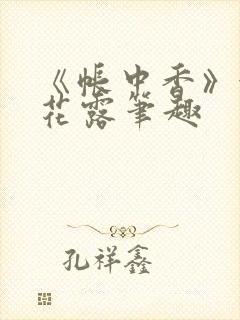 《帐中香》
花露笔趣
孔祥鑫